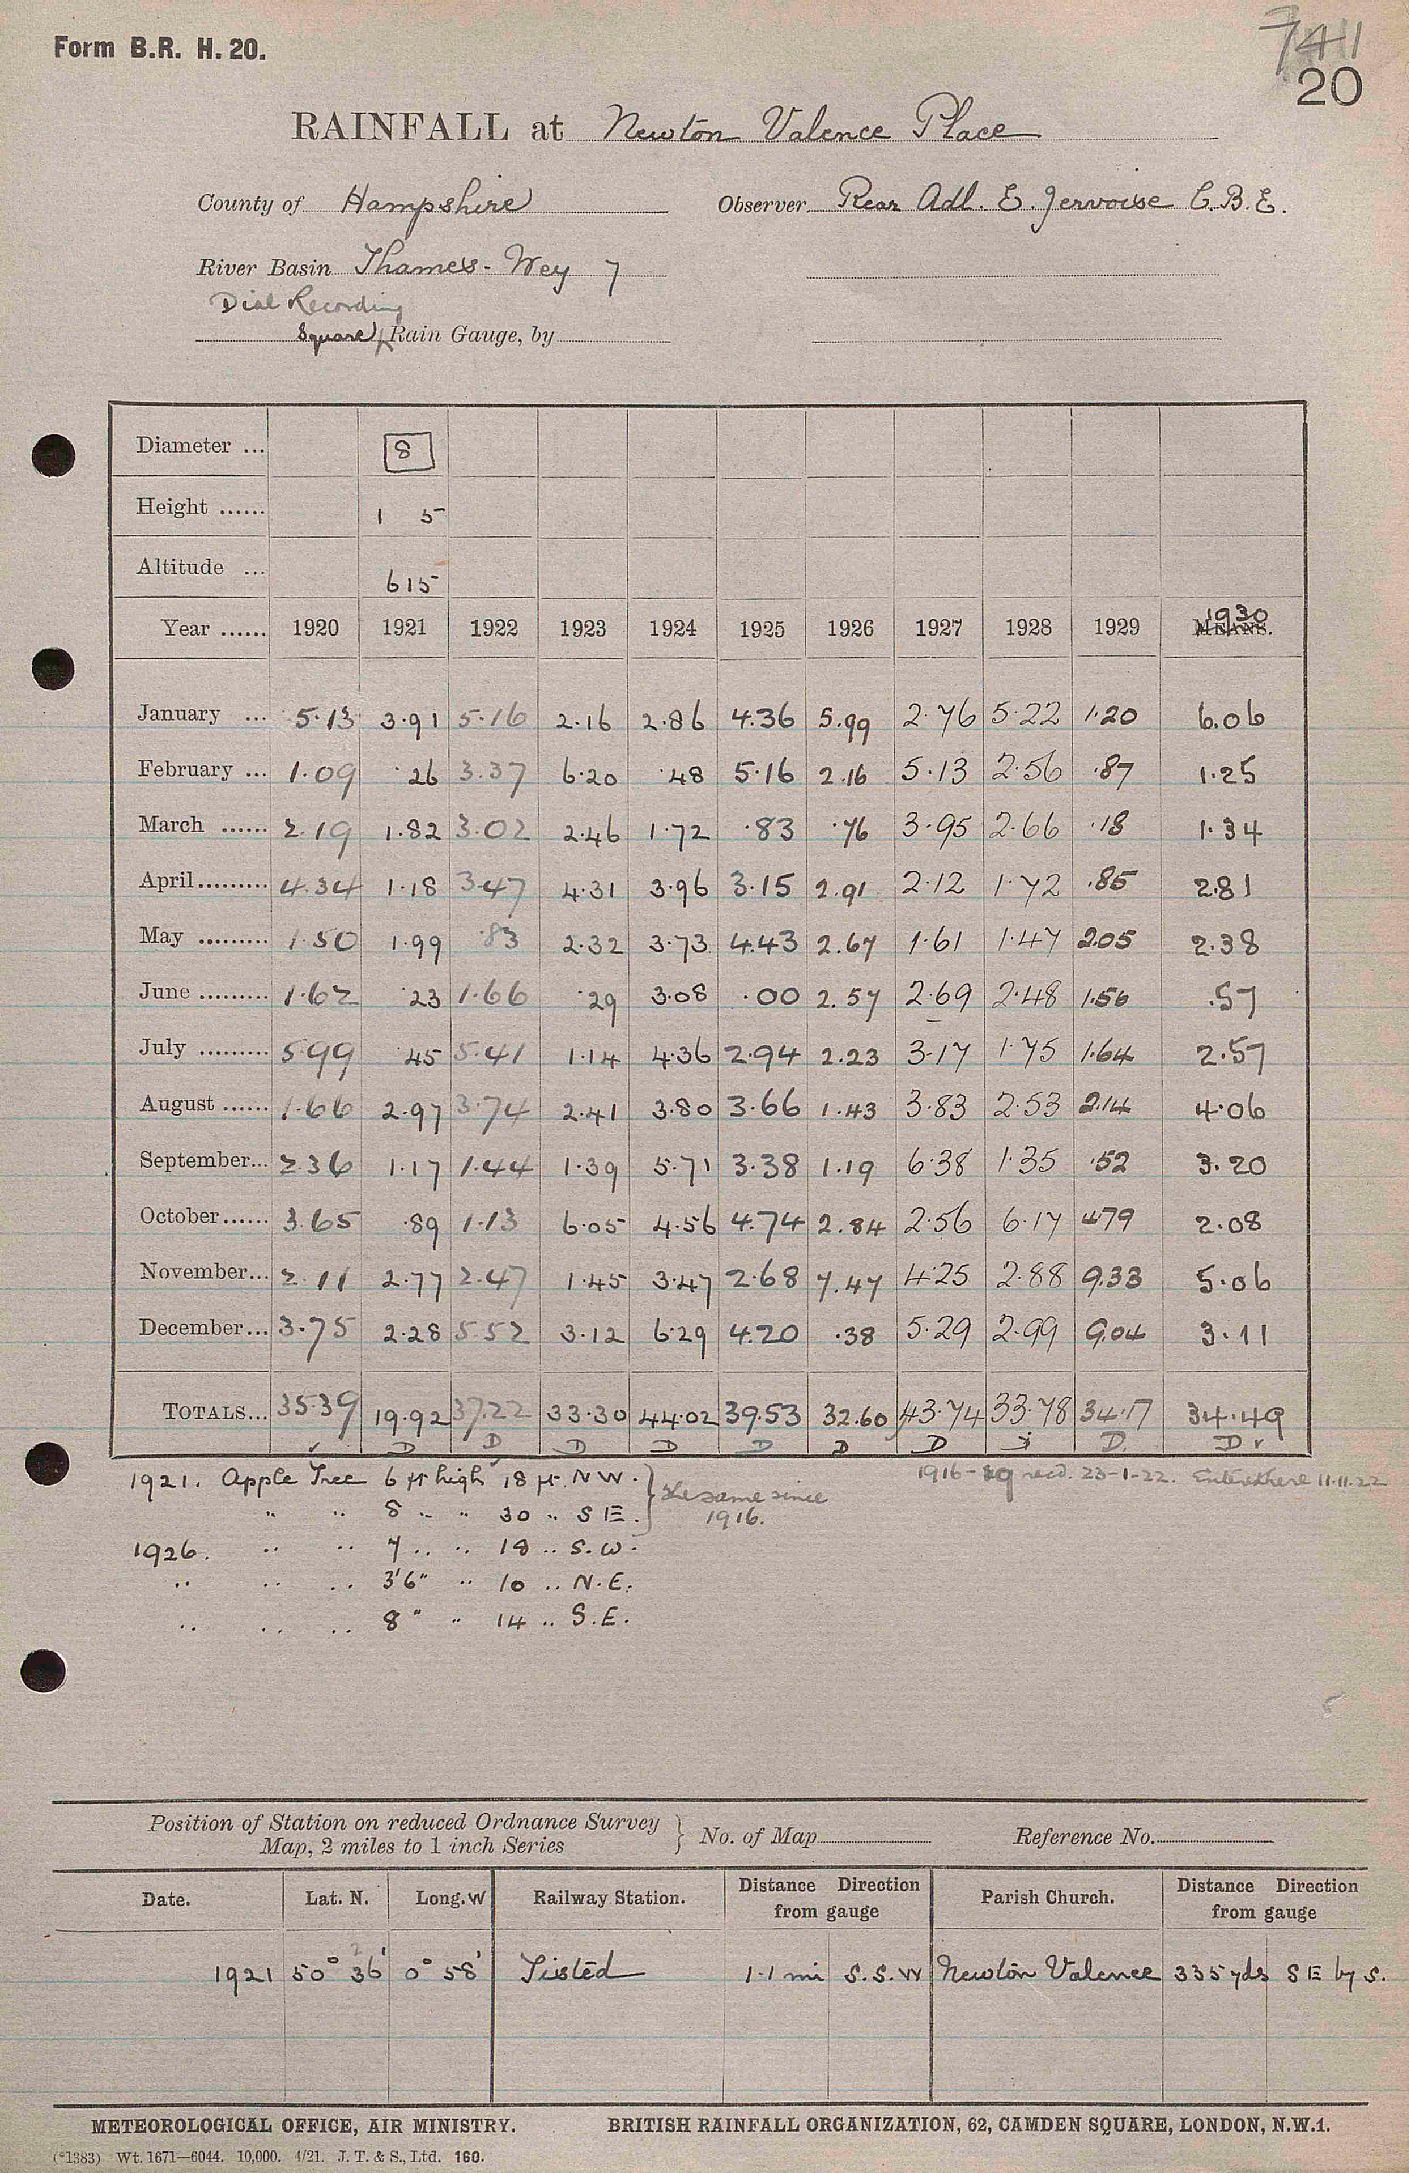 Form B.R. H. 20.
7411
20
RAINFALL at Newton Valence Place
County of Hampshire Observer Rear Adl. E. Jervoise C.B.E.
River Basin Thames - Wey 7
Dial Recording
Square Rain Gauge, by
Diameter ... 8
Height ...... 1 5
Altitude ... 615
Year ...... 1920 1921 1922 1923 1924 1925 1926 1927 1928 1929 MEANS. 1930
January ... 5.13 3.91 5.16 2.16 2.86 4.36 5.99 2.76 5.22 1.20 6.06
February ... 1.09 .26 3.37 6.20 .48 5.16 2.16 5.13 2.56 .87 1.25
March ...... 2.19 1.82 3.02 2.46 1.72 .83 .76 3.95 2.66 .18 1.34
April......... 4.34 1.18 3.47 4.31 3.96 3.15 2.91 2.12 1.72 .85 2.81
May ......... 1.50 1.99 .83 2.32 3.73 4.43 2.67 1.61 1.47 2.05 2.38
June ......... 1.62 .23 1.66 .29 3.08 .00 2.57 2.69 2.48 1.56 .57
July ......... 5.99 .45 5.41 1.14 4.36 2.94 2.23 3.17 1.75 1.64 2.57
August ...... 1.66 2.97 3.74 2.41 3.80 3.66 1.43 3.83 2.53 2.14 4.06
September... 2.36 1.17 1.44 1.39 5.71 3.38 1.19 6.38 1.35 .52 3.20
October...... 3.65 .89 1.13 6.05 4.56 4.74 2.84 2.56 6.17 4.79 2.08
November... 2.11 2.77 2.47 1.45 3.47 2.68 7.47 4.25 2.88 9.33 5.06
December... 3.75 2.28 5.52 3.12 6.29 4.20 .38 5.29 2.99 9.04 3.11
TOTALS... 35.39 19.92 37.22 33.30 44.02 39.53 32.60 43.74 33.78 34.17 34.49
✓ D D D D D D D D D ✓
1921. Apple Tree 6 ft high 18 ft. N W. } the same since 1916.
" " 8 " " 30 " S E.
1916- recd. 23-1-22. Entered here 11.11.22
1926. " " 7 " " 18 " S.W.
" " " 3'6" " 10 " N.E.
" " " 8 " " 14 " S.E.
Position of Station on reduced Ordnance Survey
Map, 2 miles to 1 inch Series } No. of Map Reference No.
Date. Lat. N. Long. W Railway Station. Distance Direction from gauge Parish Church. Distance Direction from gauge
1921 50° 36' 0° 58' Tisted 1.1 mi S.S.W Newton Valence 335 yds S E by S.
METEOROLOGICAL OFFICE, AIR MINISTRY. BRITISH RAINFALL ORGANIZATION, 62, CAMDEN SQUARE, LONDON, N.W.1.
(*1383) Wt. 1671—6044. 10,000. 4/21. J. T. & S., Ltd. 160.